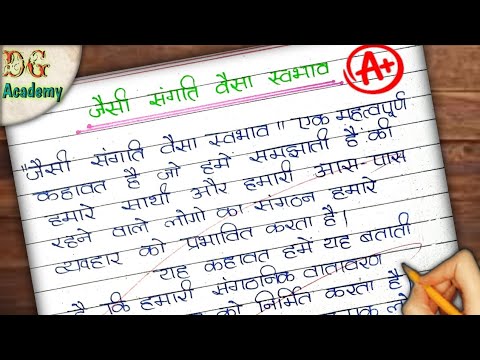 DG
Academy
जैसी संगति वैसा स्वभाव
A+
"जैसी संगति वैसा स्वभाव" एक महत्वपूर्ण
कहावत है जो हमें समझाती है की
हमारे साथी और हमारी आस-पास
रहने वाले लोगो का संगठन हमारे
व्यवहार को प्रभावित करता है।
यह कहावत हमें यह बताती
है कि हमारी संगठनिक वातावरण
को निर्मित करता है